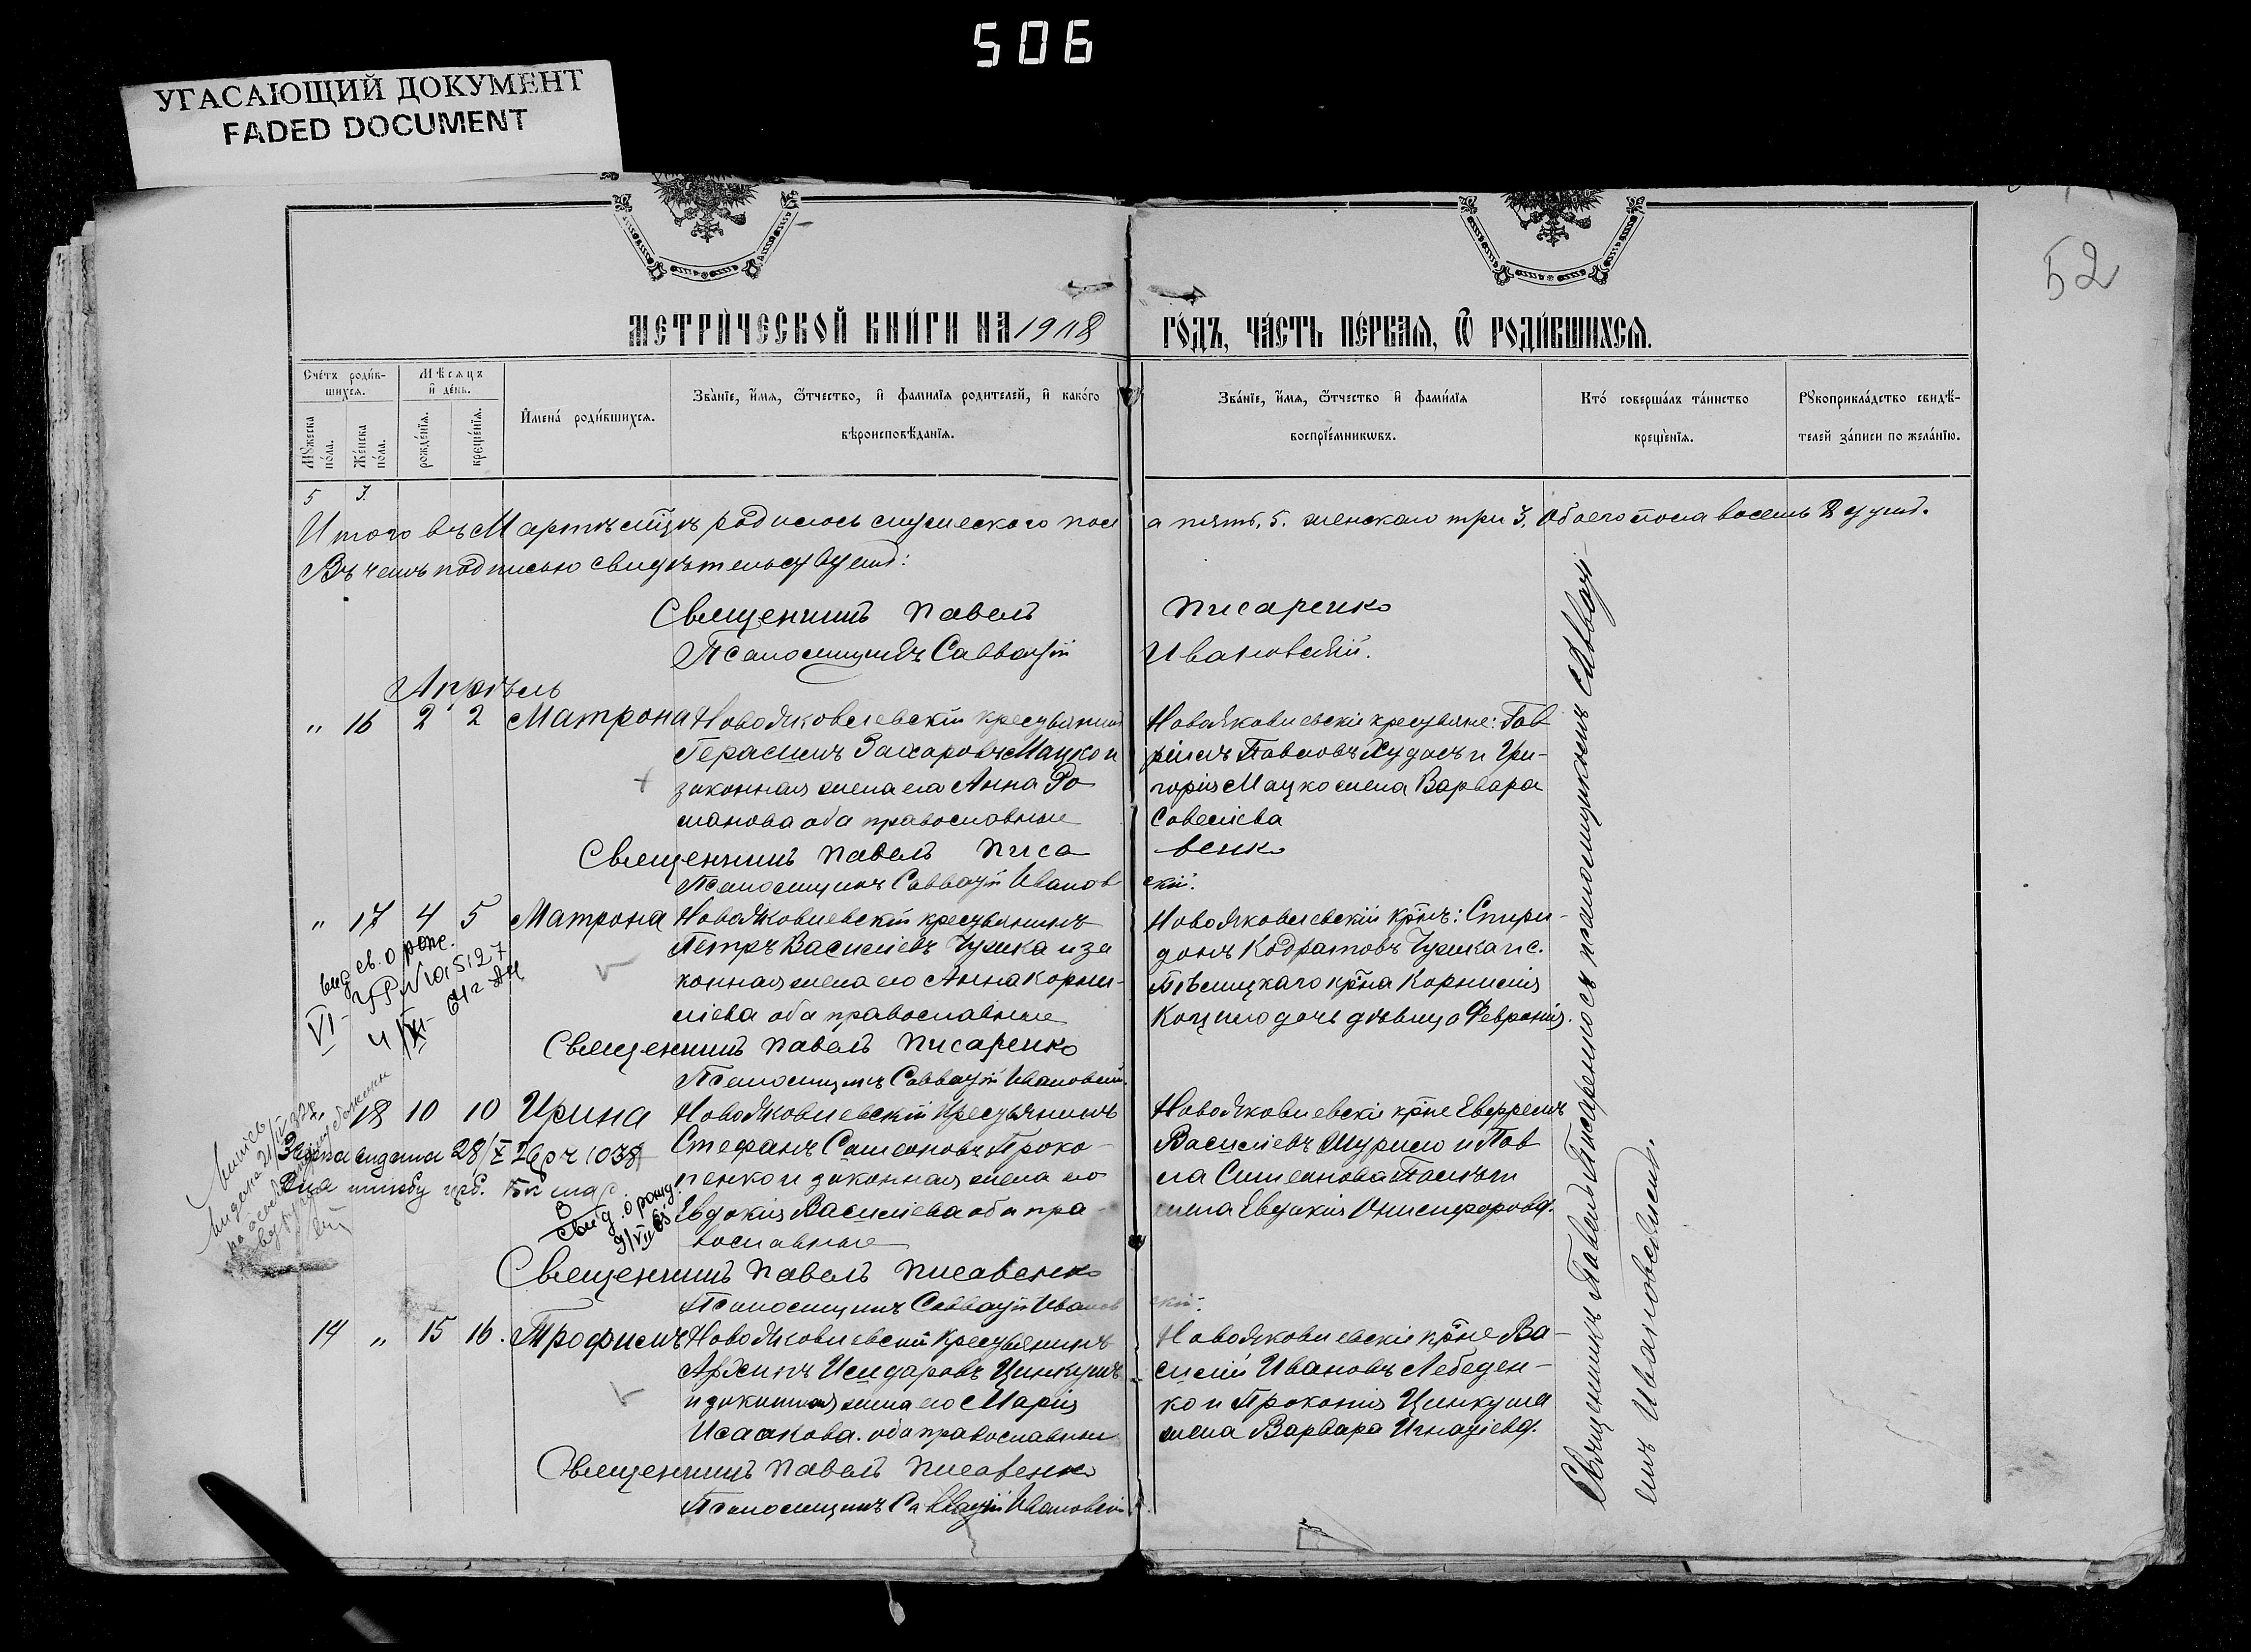 506
УГАСАЮЩИЙ ДОКУМЕНТ
FADED DOCUMENT
52
МЕТРИ́ЧЕСКОЙ КНИ́ГИ НА 1918 ГО́ДЪ, ЧА́СТЬ ПЕ́РВАЯ, Ѿ РОДИ́ВШИХСЯ.
Сче́тъ роди́в-
шихся.
Мѣсяцъ
и де́нь.
Му́жеска
по́ла.
Же́нска
по́ла.
рожде́нїя.
креще́нїя.
И҆мена́ роди́вшихся.
Зва́нїе, и҆́мя, ѻ҆́тчество, и҆ фамилїя родителей, и҆ како́гѡ
вѣроисповѣ́данїя.
Зва́нїе, и҆́мя, ѻ҆́тчество и҆ фами́лїя
воспрїе́мникѡвъ.
Кто́ соверша́лъ та́инство
креще́нїя.
Рукоприкла́дство свидѣ́-
телей за́писи по жела́нїю.
5 3.
Итого въ Мартѣ мцѣ родилось мужеского пола пять, 5. женскаго три 3, обоего пола восемь 8 душъ.
Въ чемъ подписью свидѣтельствуемъ:
Священникъ Павелъ Писаренко
Псаломщикъ Савватій Ивановскій.
Апрѣль
" 16 2 2 Матрона Новояковлевскій крестьянинъ
Герасимъ Захаровъ Мацко и
законная жена его Анна Ро
манова оба православные
Новояковлевскіе крестьяне: Гав
ріилъ Павловъ Худасъ и Гри-
горія Мацко жена Варвара
Савеліева
Священникъ Павелъ Писаренко
Псаломщикъ Савватій Ивановскій.
" 17 4 5 Матрона Новояковлевскій крестьянинъ
Петръ Василіевъ Чушка и за
конная жена его Анна Корни-
ліева оба православные
Новояковлевскій кр-нъ: Спири-
донъ Кодратовъ Чушка и с.
кр-на Корнилія
дочь дѣвица Февронія.
св. о рож.
VI-
Священникъ Павелъ Писаренко
Псаломщикъ Савватій Ивановскій.
18 10 10 Ирина Новояковлевскій крестьянинъ
Стефанъ Самсоновъ Проко-
пенко и законная жена его
Евдокія Василіева оба пра-
вославные
Новояковлевскіе кр-не Евфремъ
Василіевъ Шурило и Пав
ла Симеонова
жена Евдокія Онисифорова.
видана 28/X 26 р ч 1038
свид. о рожд.
9/VII
Священникъ Павелъ Писаренко
Псаломщикъ Савватій Ивановскій.
14 " 15 16. Трофимъ Новояковлевскій крестьянинъ
Архипъ Исидоровъ Цинкушъ
и законная жена его Марія
Исаакова. оба православные
Новояковлевскіе кр-не Ва-
силій Ивановъ Лебеден-
ко и Прокопія Цинкуша
жена Варвара Игнатіева.
Священникъ Павелъ Писаренко
Псаломщикъ Савватій Ивановскій.
Священникъ Павелъ Писаренко съ псаломщикомъ Савваті-
емъ Ивановскимъ.